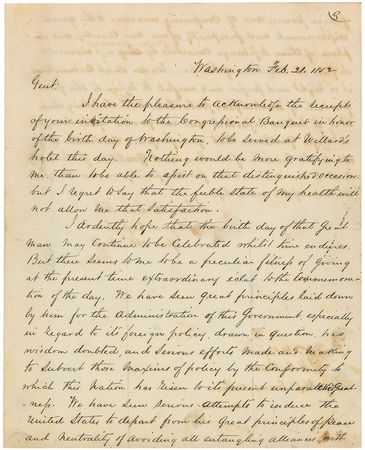 Washington Feb. 21. 1852
Gent:
I have the pleasure to acknowledge the receipt
of your invitation, to the Congressional Banquet in honor
of the birth day of Washington, to be served at Willard's
hotel this day. Nothing would be more gratifying to
me than to be able to assist on that distinguished occasion
but I regret to say that the feeble state of my health will
not allow me that satisfaction.
I Ardently hope that the birth day of that Great
Man may Continue to be Celebrated whilst time endures.
But there seems to me to be a peculiar fitness of giving
at the present time extraordinary eclat to the Commemora-
tion of the day. We have seen great principles laid down
by him for the Administration of this Government, especially
in regard to its foreign policy, drawn in question, his
wisdom doubted, and serious efforts made and making
to subvert those maxims of policy by the Conformity to
which this Nation has risen to its present unparalleled Great-
-ness. We have seen serious attempts to induce the
United States to depart from his Great principles of peace
and Neutrality of avoiding all entangling alliances with